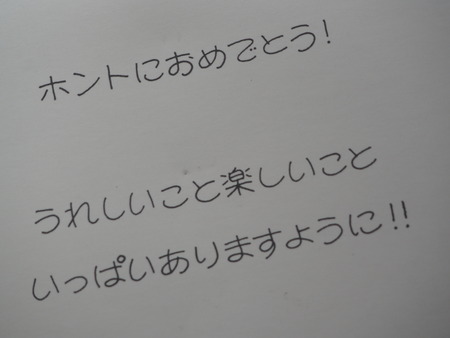 ホントにおめでとう!
うれしいこと楽しいこと
いっぱいありますように!!